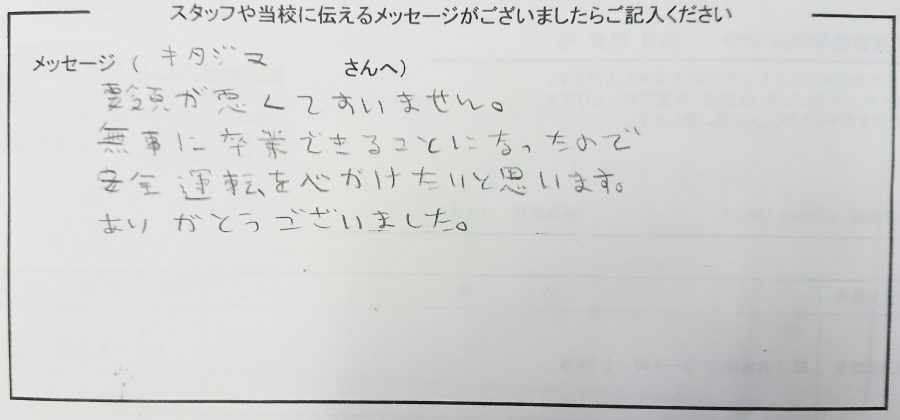 スタッフや当校に伝えるメッセージがございましたらご記入ください
メッセージ ( キタジマ さんへ)
要領が悪くてすいません。
無事に卒業できることになったので
安全運転を心がけたいと思います。
ありがとうございました。